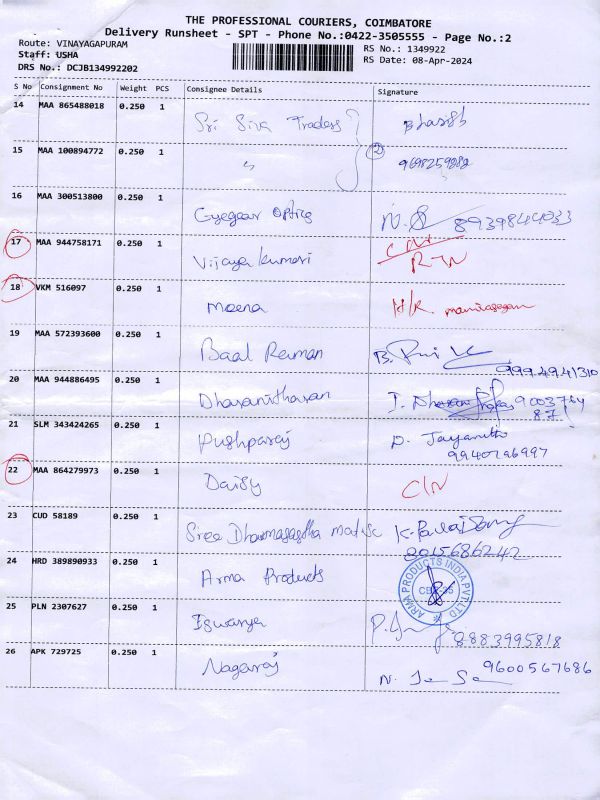 THE PROFESSIONAL COURIERS, COIMBATORE
Delivery Runsheet - SPT - Phone No.:0422-3505555 - Page No.:2
Route: VINAYAGAPURAM RS No.: 1349922
Staff: USHA RS Date: 08-Apr-2024
DRS No.: DCJB134992202
S No Consignment No Weight PCS Consignee Details Signature
14 MAA 865488018 0.250 1 Sri Siva Traders
15 MAA 100894772 0.250 1 " 2 9698259282
16 MAA 300513800 0.250 1 Optics N.S 8939844033
17 MAA 944758171 0.250 1 Vijaya Kumari
18 VKM 516097 0.250 1 Meena
19 MAA 572393600 0.250 1 Baal Reiman B. 9994941310
20 MAA 944886495 0.250 1 Dharanitharan I.
21 SLM 343424265 0.250 1 Pushparaj D. Jayanithi
9940296997
22 MAA 864279973 0.250 1 Daisy C/N
23 CUD 58189 0.250 1 Sree
8015686242
24 HRD 389890933 0.250 1 Arma Products
ARMA PRODUCTS INDIA PVT LTD
25 PLN 2307627 0.250 1 Iswarya 9883995818
26 APK 729725 0.250 1 Nagaraj 9600567686